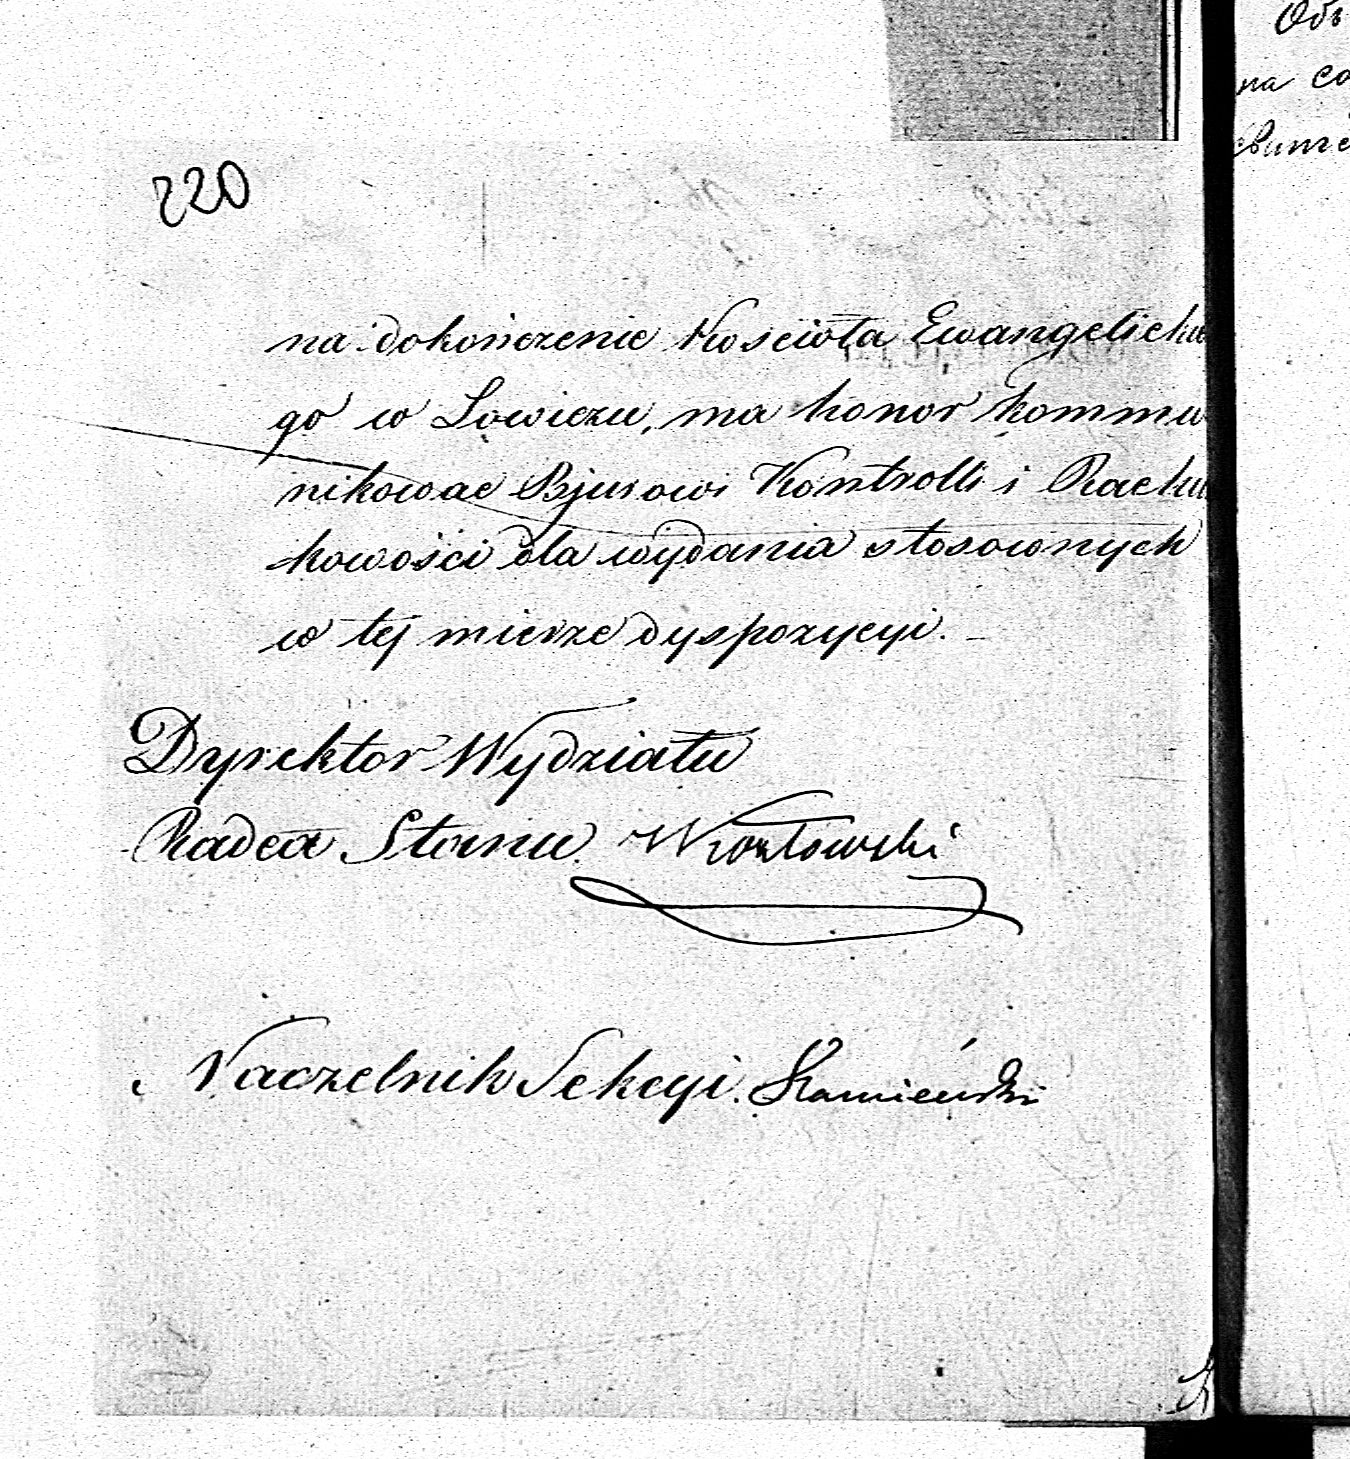 220
na dokończenie Kościoła Ewangelicke
go w Łowiczu, ma honor kommu
nikować Bjurowi Kontrolli i Rachu
kowości dla wydania stosownych
w tej mierze dyspozycyi.
Dyrektor Wydziału
Radca Stanu Kozłowski
Naczelnik Sekcyi. Kamieński
на со